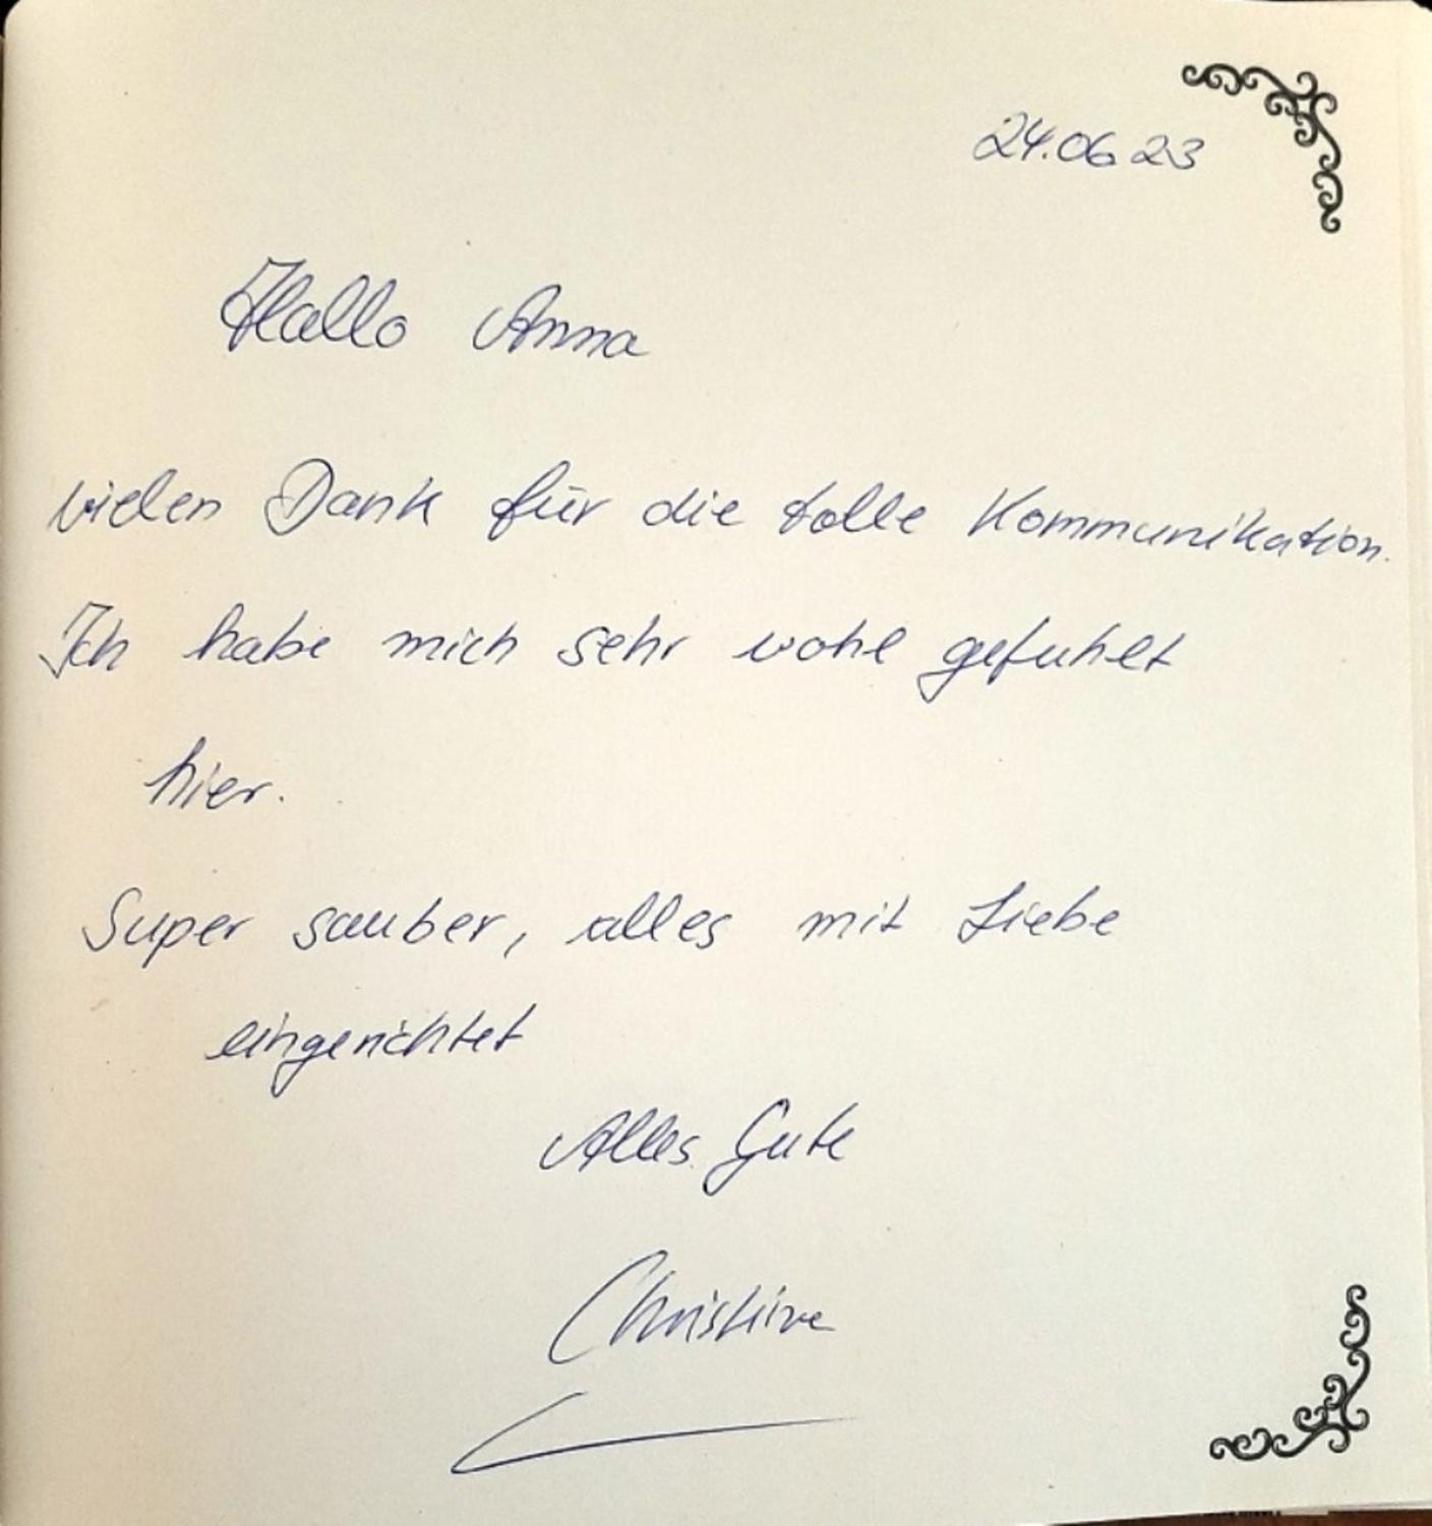 24.06 23
Hallo Anna
vielen Dank für die tolle Kommunikation.
Ich habe mich sehr wohl gefuhlt
hier.
Super sauber, alles mit Liebe
eingerichtet
Alles Gute
Christine